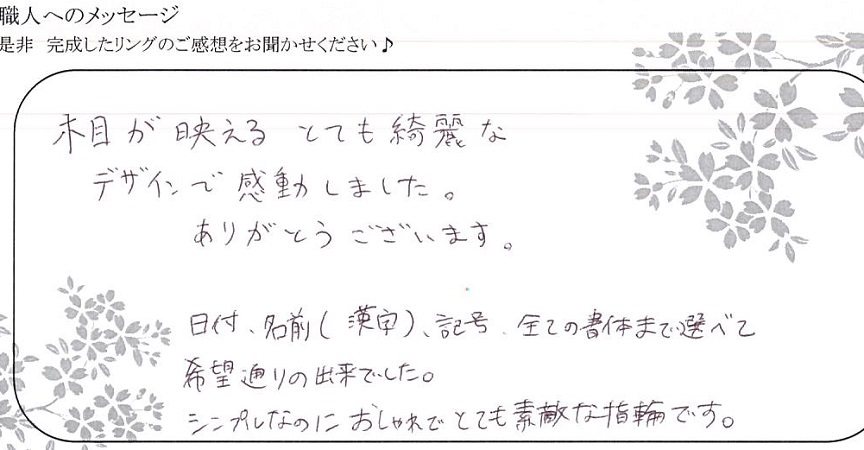 職人へのメッセージ
是非 完成したリングのご感想をお聞かせください♪
木目が映える とても綺麗な
デザインで感動しました。
ありがとうございます。
日付、名前(漢字)、記号、全ての書体まで選べて
希望通りの出来でした。
シンプルなのにおしゃれでとても素敵な指輪です。